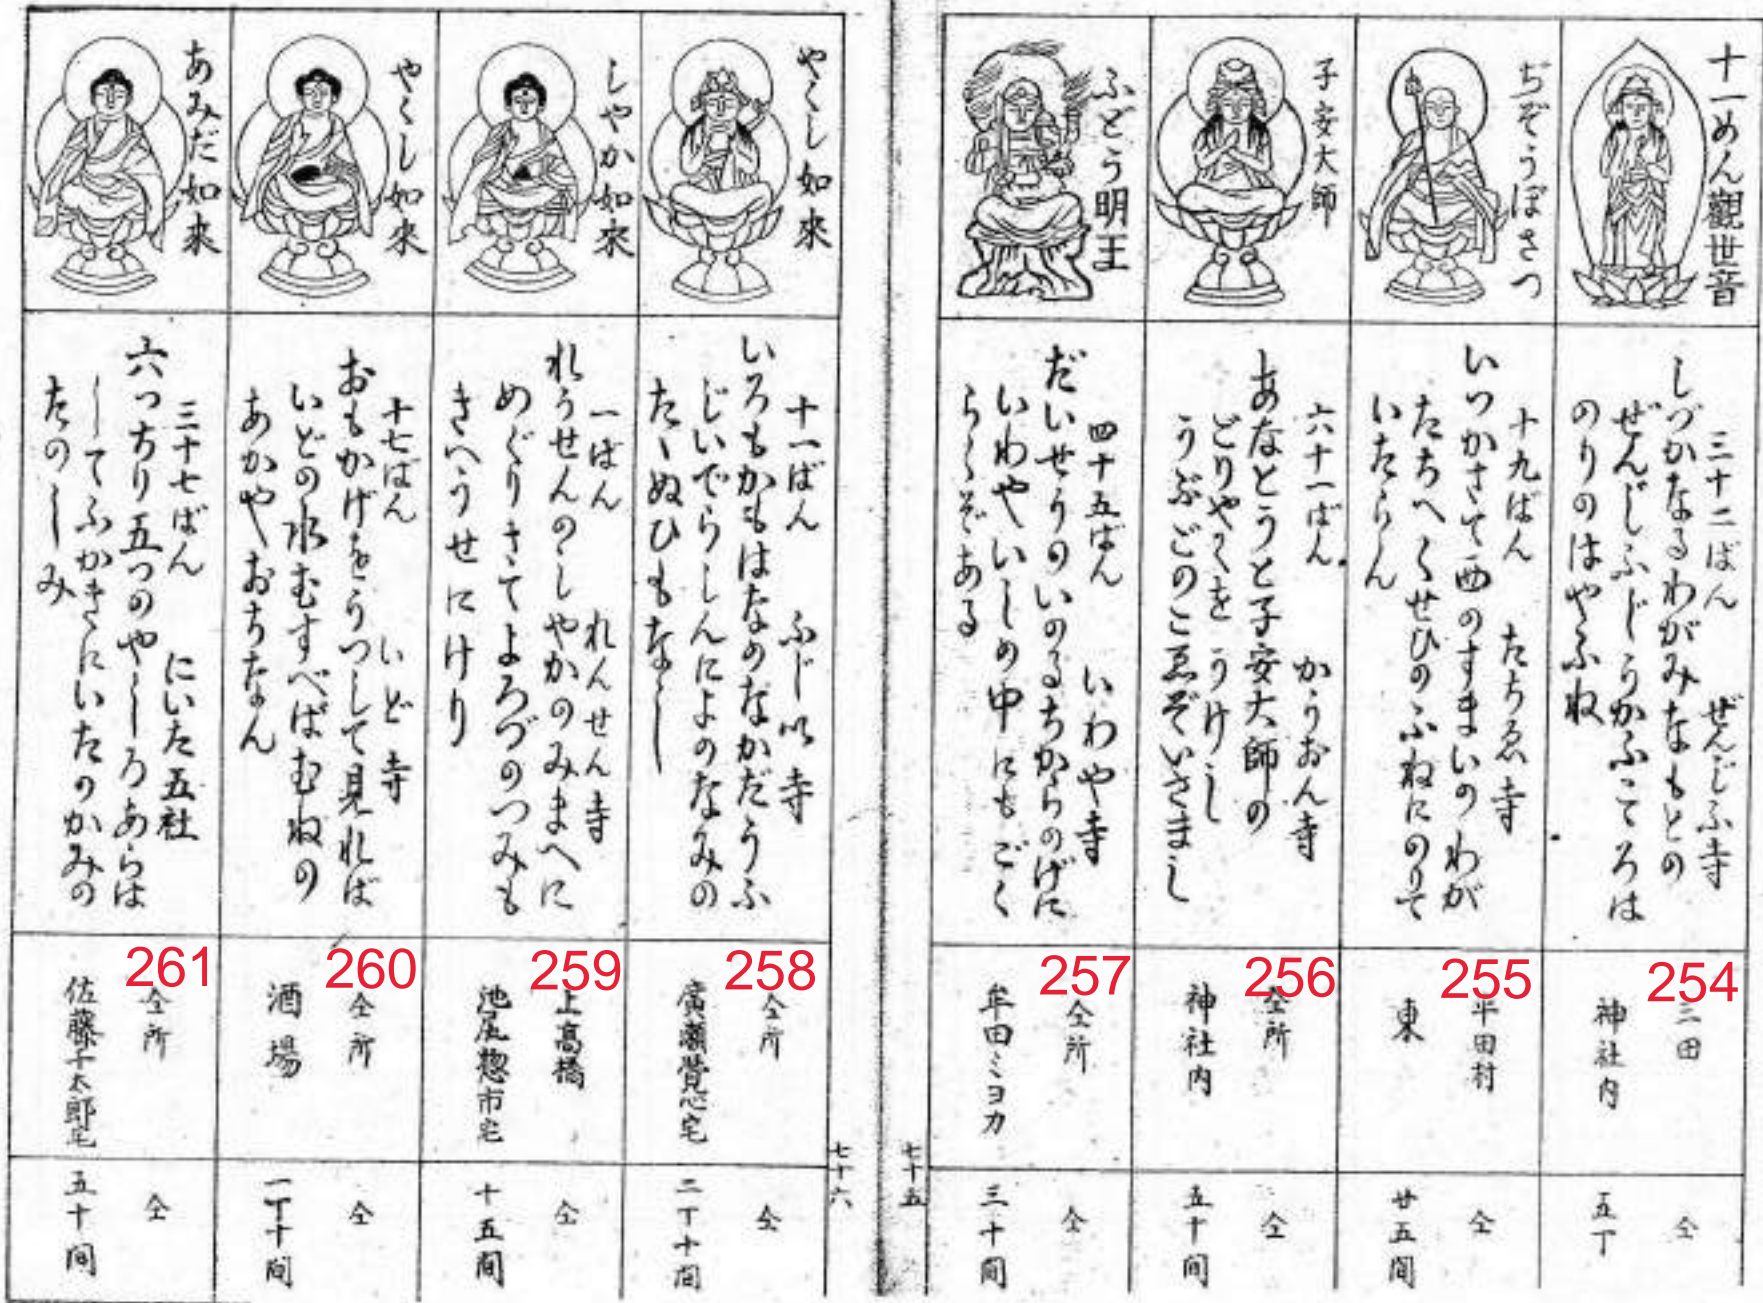 十一めん觀世音
三十二ばん　ぜんじふ寺
しづかなるわがみなもとの
ぜんじふじうかふころは
のりのはやふね
254
三田
神社内
仝
五丁
ぢぞうぼさつ
十九ばん　たちゑ寺
いつかさて西のすまいのわが
たちへくせひのふねにのりて
いたらん
255
牟田村
東
仝
廿五間
子安大師
六十一ばん　かうおん寺
あなとうと子安大師の
どりやくを うけし
うぶごのこゑぞいさまし
256
仝所
神社内
仝
五十間
ふどう明王
四十五ばん　いわや寺
だいせうのいのるちからのげに
いわやいしの中にもごく
らくぞある
257
仝所
牟田ミヨカ
仝
三十間
七十五
やくし如來
十一ばん　ふじゐ寺
いろもかもはなのなかだうふ
じいでらしんによのなみの
たゝぬひもなし
258
仝所
廣瀬覺心宅
仝
二丁十間
七十六
しやか如來
一ばん　れんせん寺
れうせんのしやかのみまへに
めぐりきてよろづのつみも
きへうせにけり
259
上高橋
池尾惣市宅
仝
十五間
やくし如來
十七ばん　いど寺
おもかげをうつして見れば
いどの水むすべばむねの
あかやおちなん
260
仝所
酒場
仝
一丁十間
あみだ如來
三十七ばん　にいた五社
六つちり五つのやしろあらは
してふかきにいたのかみの
たのしみ
261
仝所
佐藤千太郎宅
仝
五十間